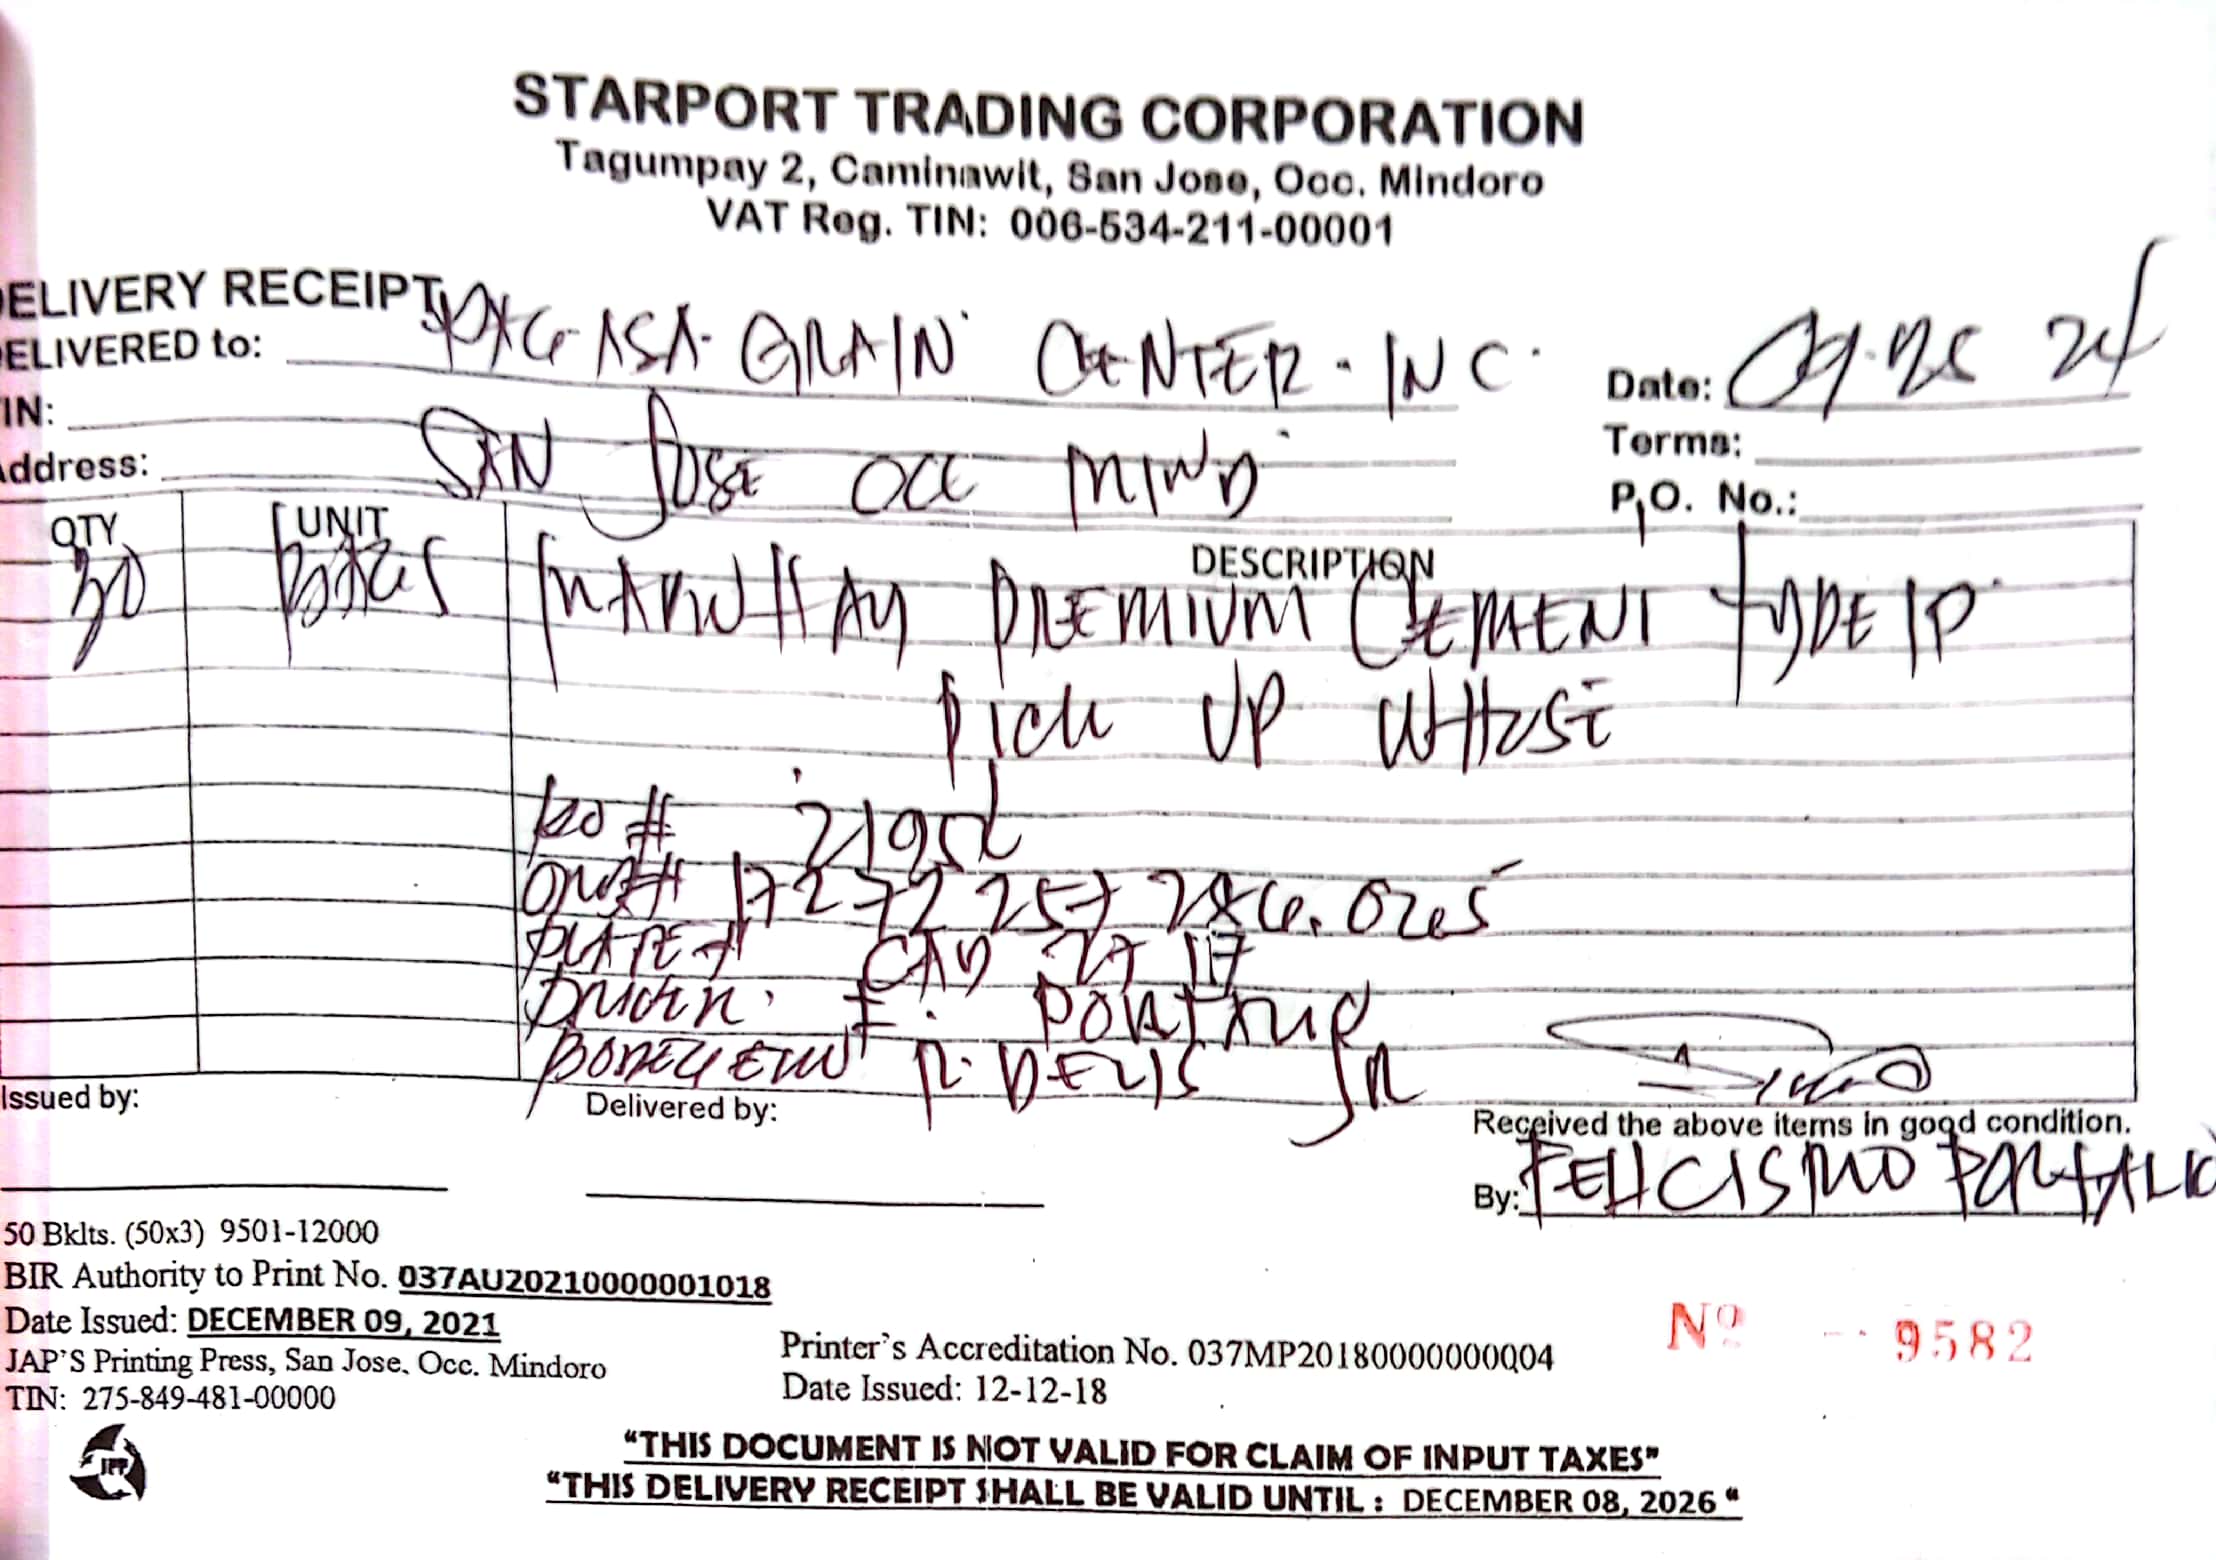 STARPORT TRADING CORPORATION
Tagumpay 2, Caminawit, San Jose, Occ. Mindoro
VAT Reg. TIN: 006-534-211-00001
ELIVERY RECEIPT
ELIVERED to: PAG-ASA GRAIN CENTER INC. Date: 09.25 24
IN: Terms:
Address: SAN JOSE OCC MIND P.O. No.:
QTY UNIT DESCRIPTION
30 BAGS PREMIUM CEMENT TYPE 1P
PICK UP WHOSE
#
# 17272257
PLATE # 2717
DRIVER: F. JR
R.
Issued by: Delivered by: Received the above items in good condition.
By: FELICISMO
50 Bklts. (50x3) 9501-12000
BIR Authority to Print No. 037AU20210000001018
Date Issued: DECEMBER 09, 2021
JAP'S Printing Press, San Jose, Occ. Mindoro
TIN: 275-849-481-00000
Printer's Accreditation No. 037MP20180000000004
Date Issued: 12-12-18
Nº 9582
JPP
"THIS DOCUMENT IS NOT VALID FOR CLAIM OF INPUT TAXES"
"THIS DELIVERY RECEIPT SHALL BE VALID UNTIL : DECEMBER 08, 2026 "